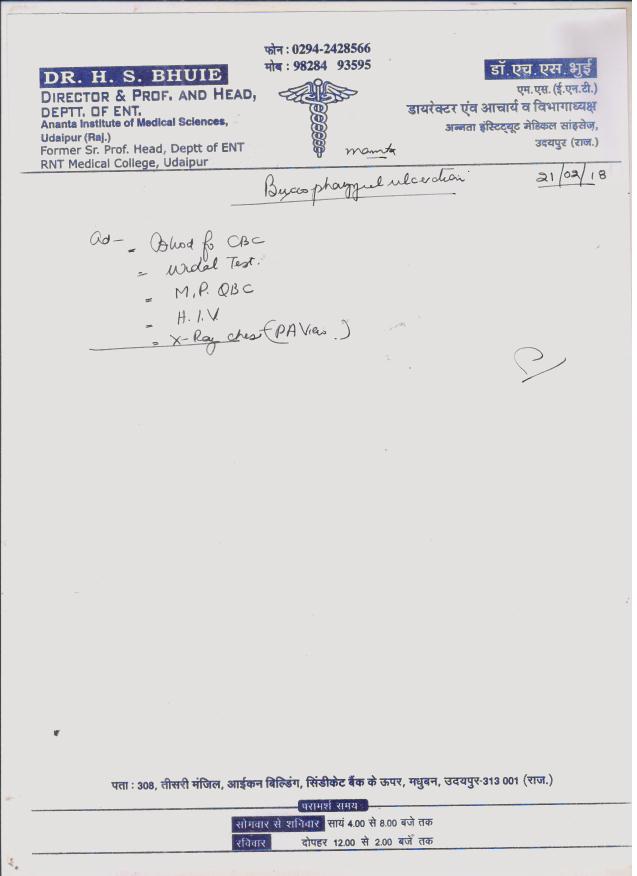 फोन : 0294-2428566
मोब : 98284 93595
DR. H. S. BHUIE
DIRECTOR & PROF. AND HEAD,
DEPTT. OF ENT.
Ananta Institute of Medical Sciences,
Udaipur (Raj.)
Former Sr. Prof. Head, Deptt of ENT
RNT Medical College, Udaipur
डॉ. एच. एस. भुई
एम.एस. (ई.एन.टी.)
डायरेक्टर एंव आचार्य व विभागाध्यक्ष
अनन्ता इंस्टिट्यूट मेडिकल सांइसेज,
उदयपुर (राज.)
mamta
21/02/18
Buccopharyngeal ulceration
Ad -
= Blood for CBC
= Widal Test.
= M.P. QBC
= H.I.V.
= X-Ray chest (PA View)
पता : 308, तीसरी मंजिल, आईकन बिल्डिंग, सिंडीकेट बैंक के ऊपर, मधुबन, उदयपुर-313 001 (राज.)
परामर्श समय
सोमवार से शनिवार सायं 4.00 से 8.00 बजे तक
रविवार दोपहर 12.00 से 2.00 बजे तक